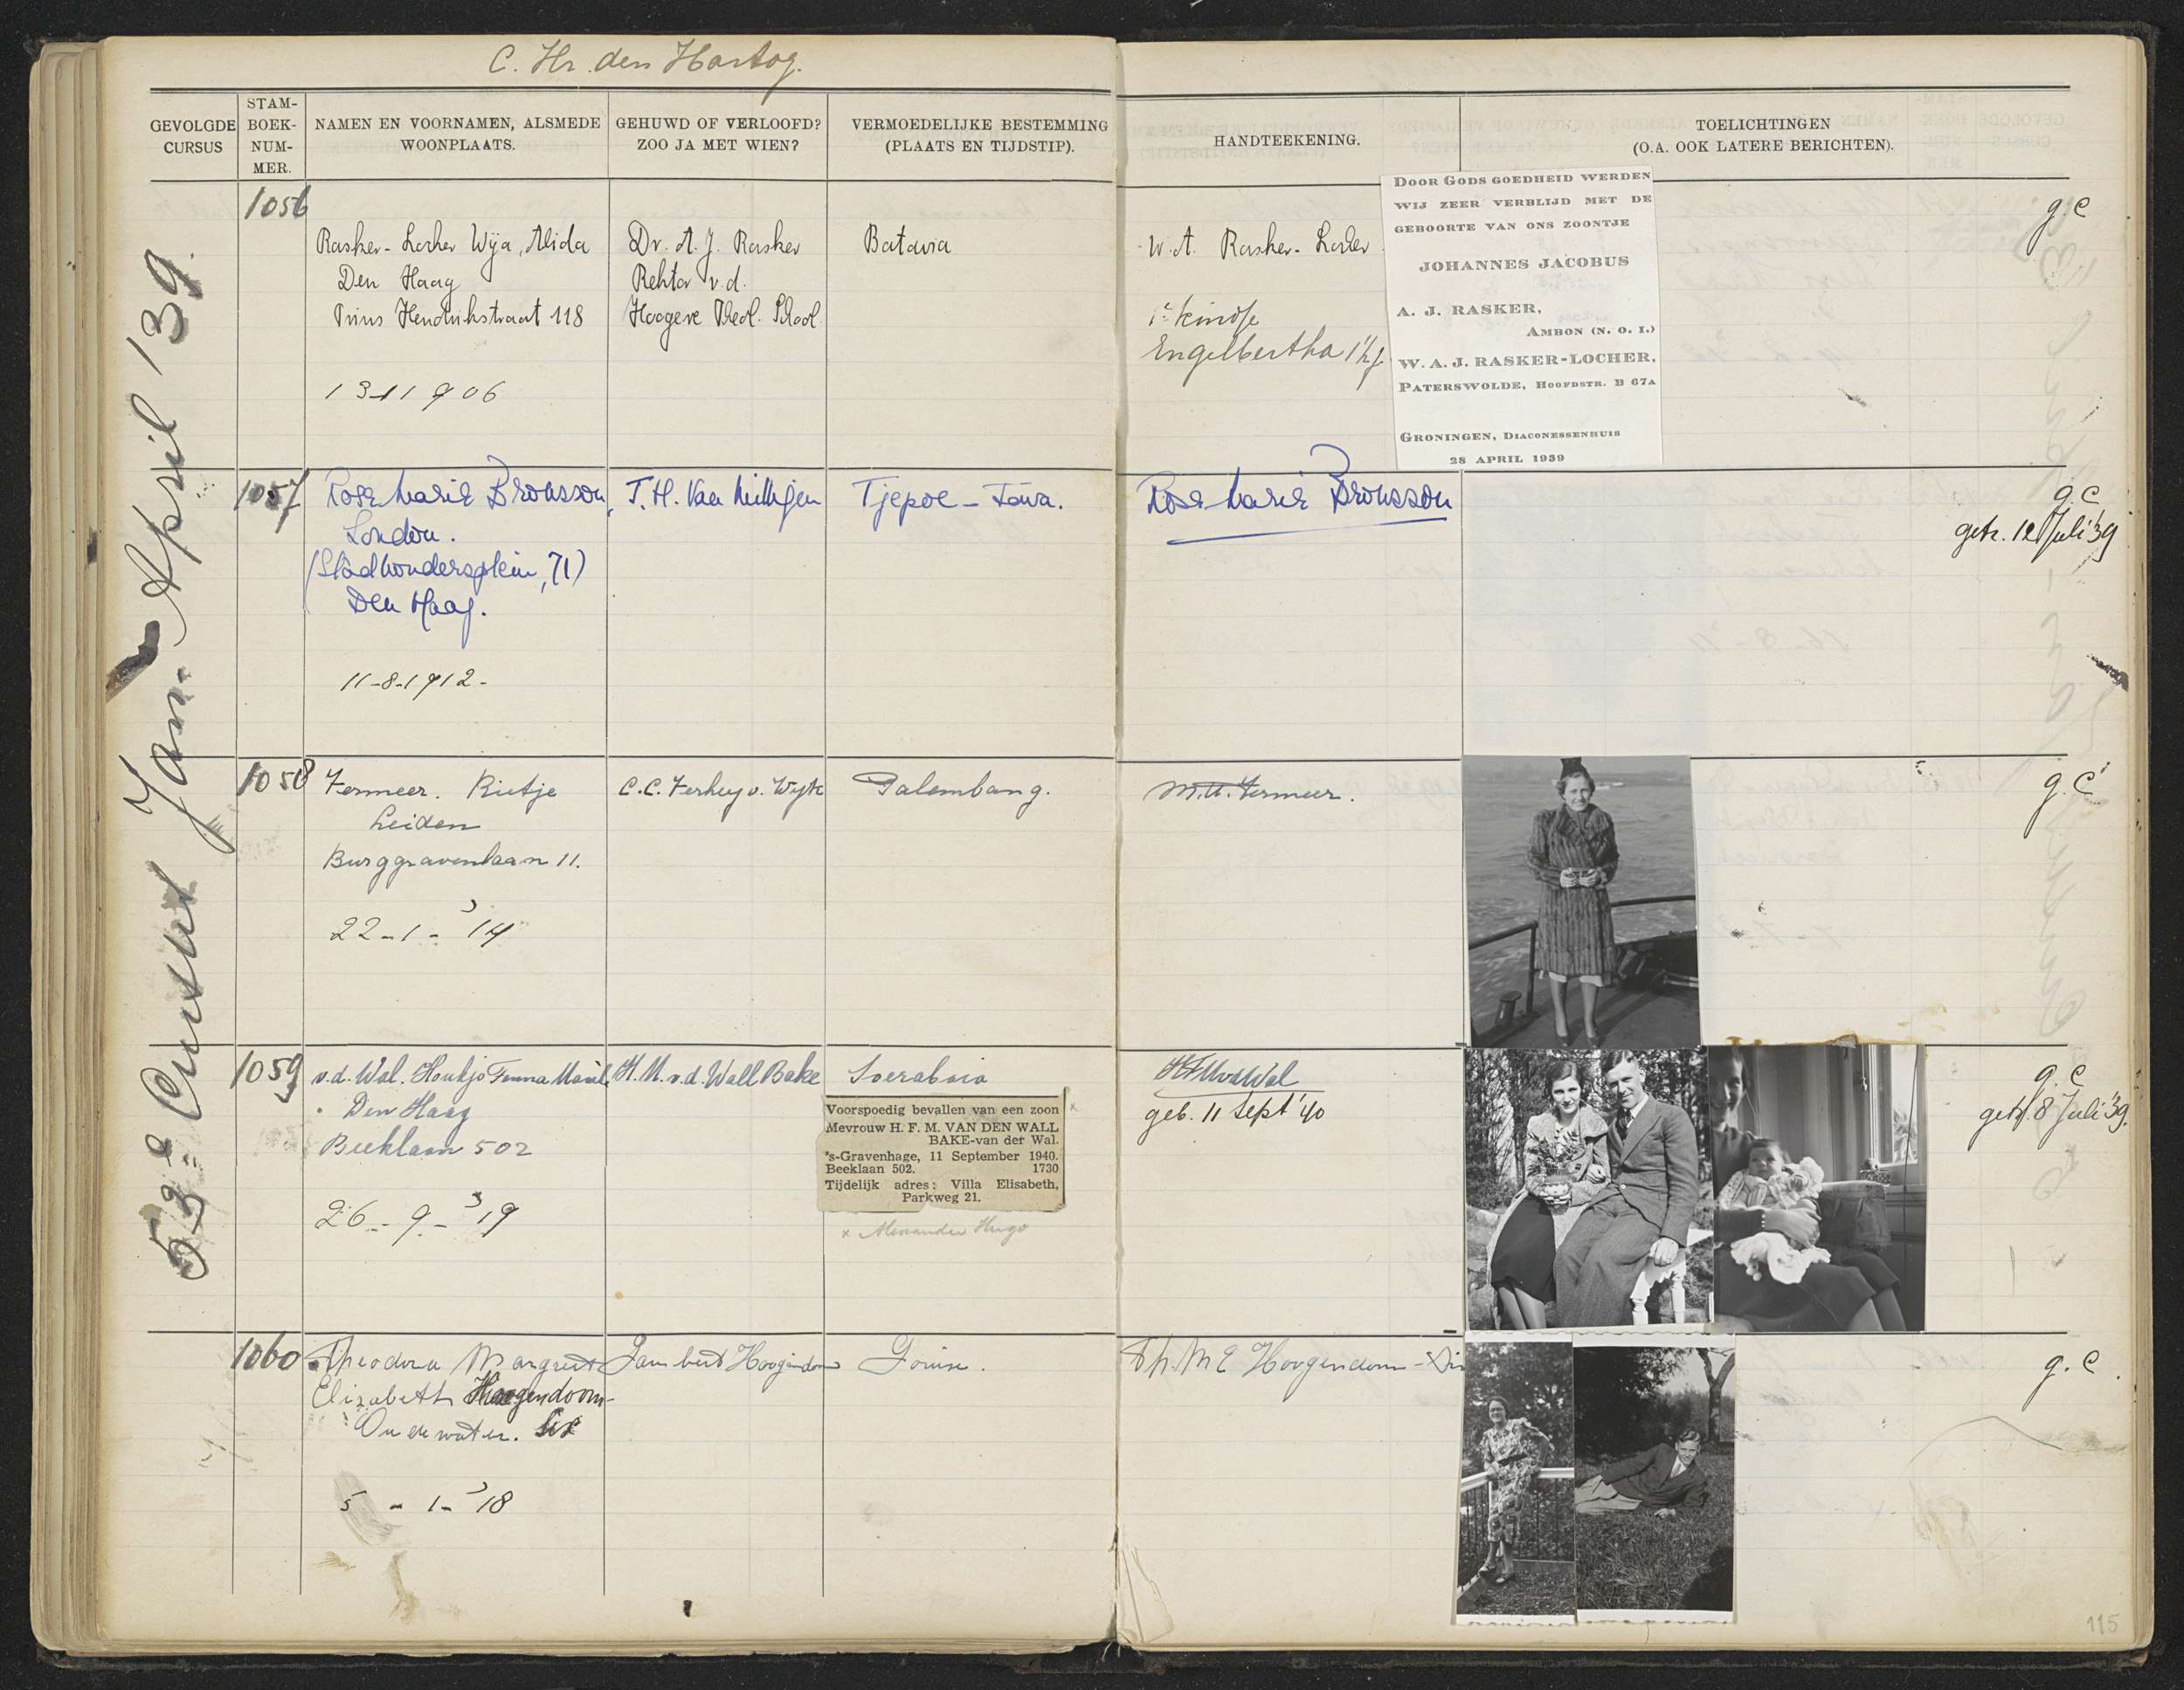 C. Hr. den Hartog.
GEVOLGDE CURSUS
STAM-BOEK-NUM-MER.
NAMEN EN VOORNAMEN, ALSMEDE WOONPLAATS.
GEHUWD OF VERLOOFD? ZOO JA MET WIEN?
VERMOEDELIJKE BESTEMMING (PLAATS EN TIJDSTIP).
HANDTEEKENING.
TOELICHTINGEN
(O.A. OOK LATERE BERICHTEN).
53e Cursus Jan.-April '39.
1056
Rasker-Locher Wija, Alida
Den Haag
Prins Hendrikstraat 118
13-11 906
Dr. A. J. Rasker
Rektor v.d.
Hoogere Theol. School.
Batavia
W. A. Rasker-Locher
1e kindje
Engelbertha 1½ j.
DOOR GODS GOEDHEID WERDEN
WIJ ZEER VERBLIJD MET DE
GEBOORTE VAN ONS ZOONTJE
JOHANNES JACOBUS
A. J. RASKER,
AMBON (N. O. I.)
W. A. J. RASKER-LOCHER,
PATERSWOLDE, HOOFDSTR. B 67A
GRONINGEN, DIACONESSENHUIS
28 APRIL 1939
g.c
1057
Rose Marie Bronsson,
London.
(Stadhoudersplein, 71)
Den Haag.
11-8-1912-
T. H. Van
Tjepoe - Java.
Rose Marie Bronsson
g.c
getr. 12 Juli '39
1058
Vermeer. Rietje
Leiden
Burggravenlaan 11.
22-1-'14
C.C. Verhey v. Wijk
Palembang.
M.A. Vermeer.
g.c
1059
v.d. Wal. Houkjo Fenna Marie
Den Haag
Beeklaan 502
26-9-'19
H. M. v.d. Wall Bake
Soerabaia
Voorspoedig bevallen van een zoon x
Mevrouw H. F. M. VAN DEN WALL
BAKE-van der Wal.
's-Gravenhage, 11 September 1940.
Beeklaan 502. 1730
Tijdelijk adres: Villa Elisabeth,
Parkweg 21.
x Alexander Hugo
HFMvdWal
geb. 11 Sept '40
g.c
getr. 8 Juli '39.
1060
Theodora Margreet
Elizabeth Hoogendoorn-
Oudewater.
5-1-'18
Lambert Hoogendoorn
Th. M E Hoogendoorn-
g.c.
115